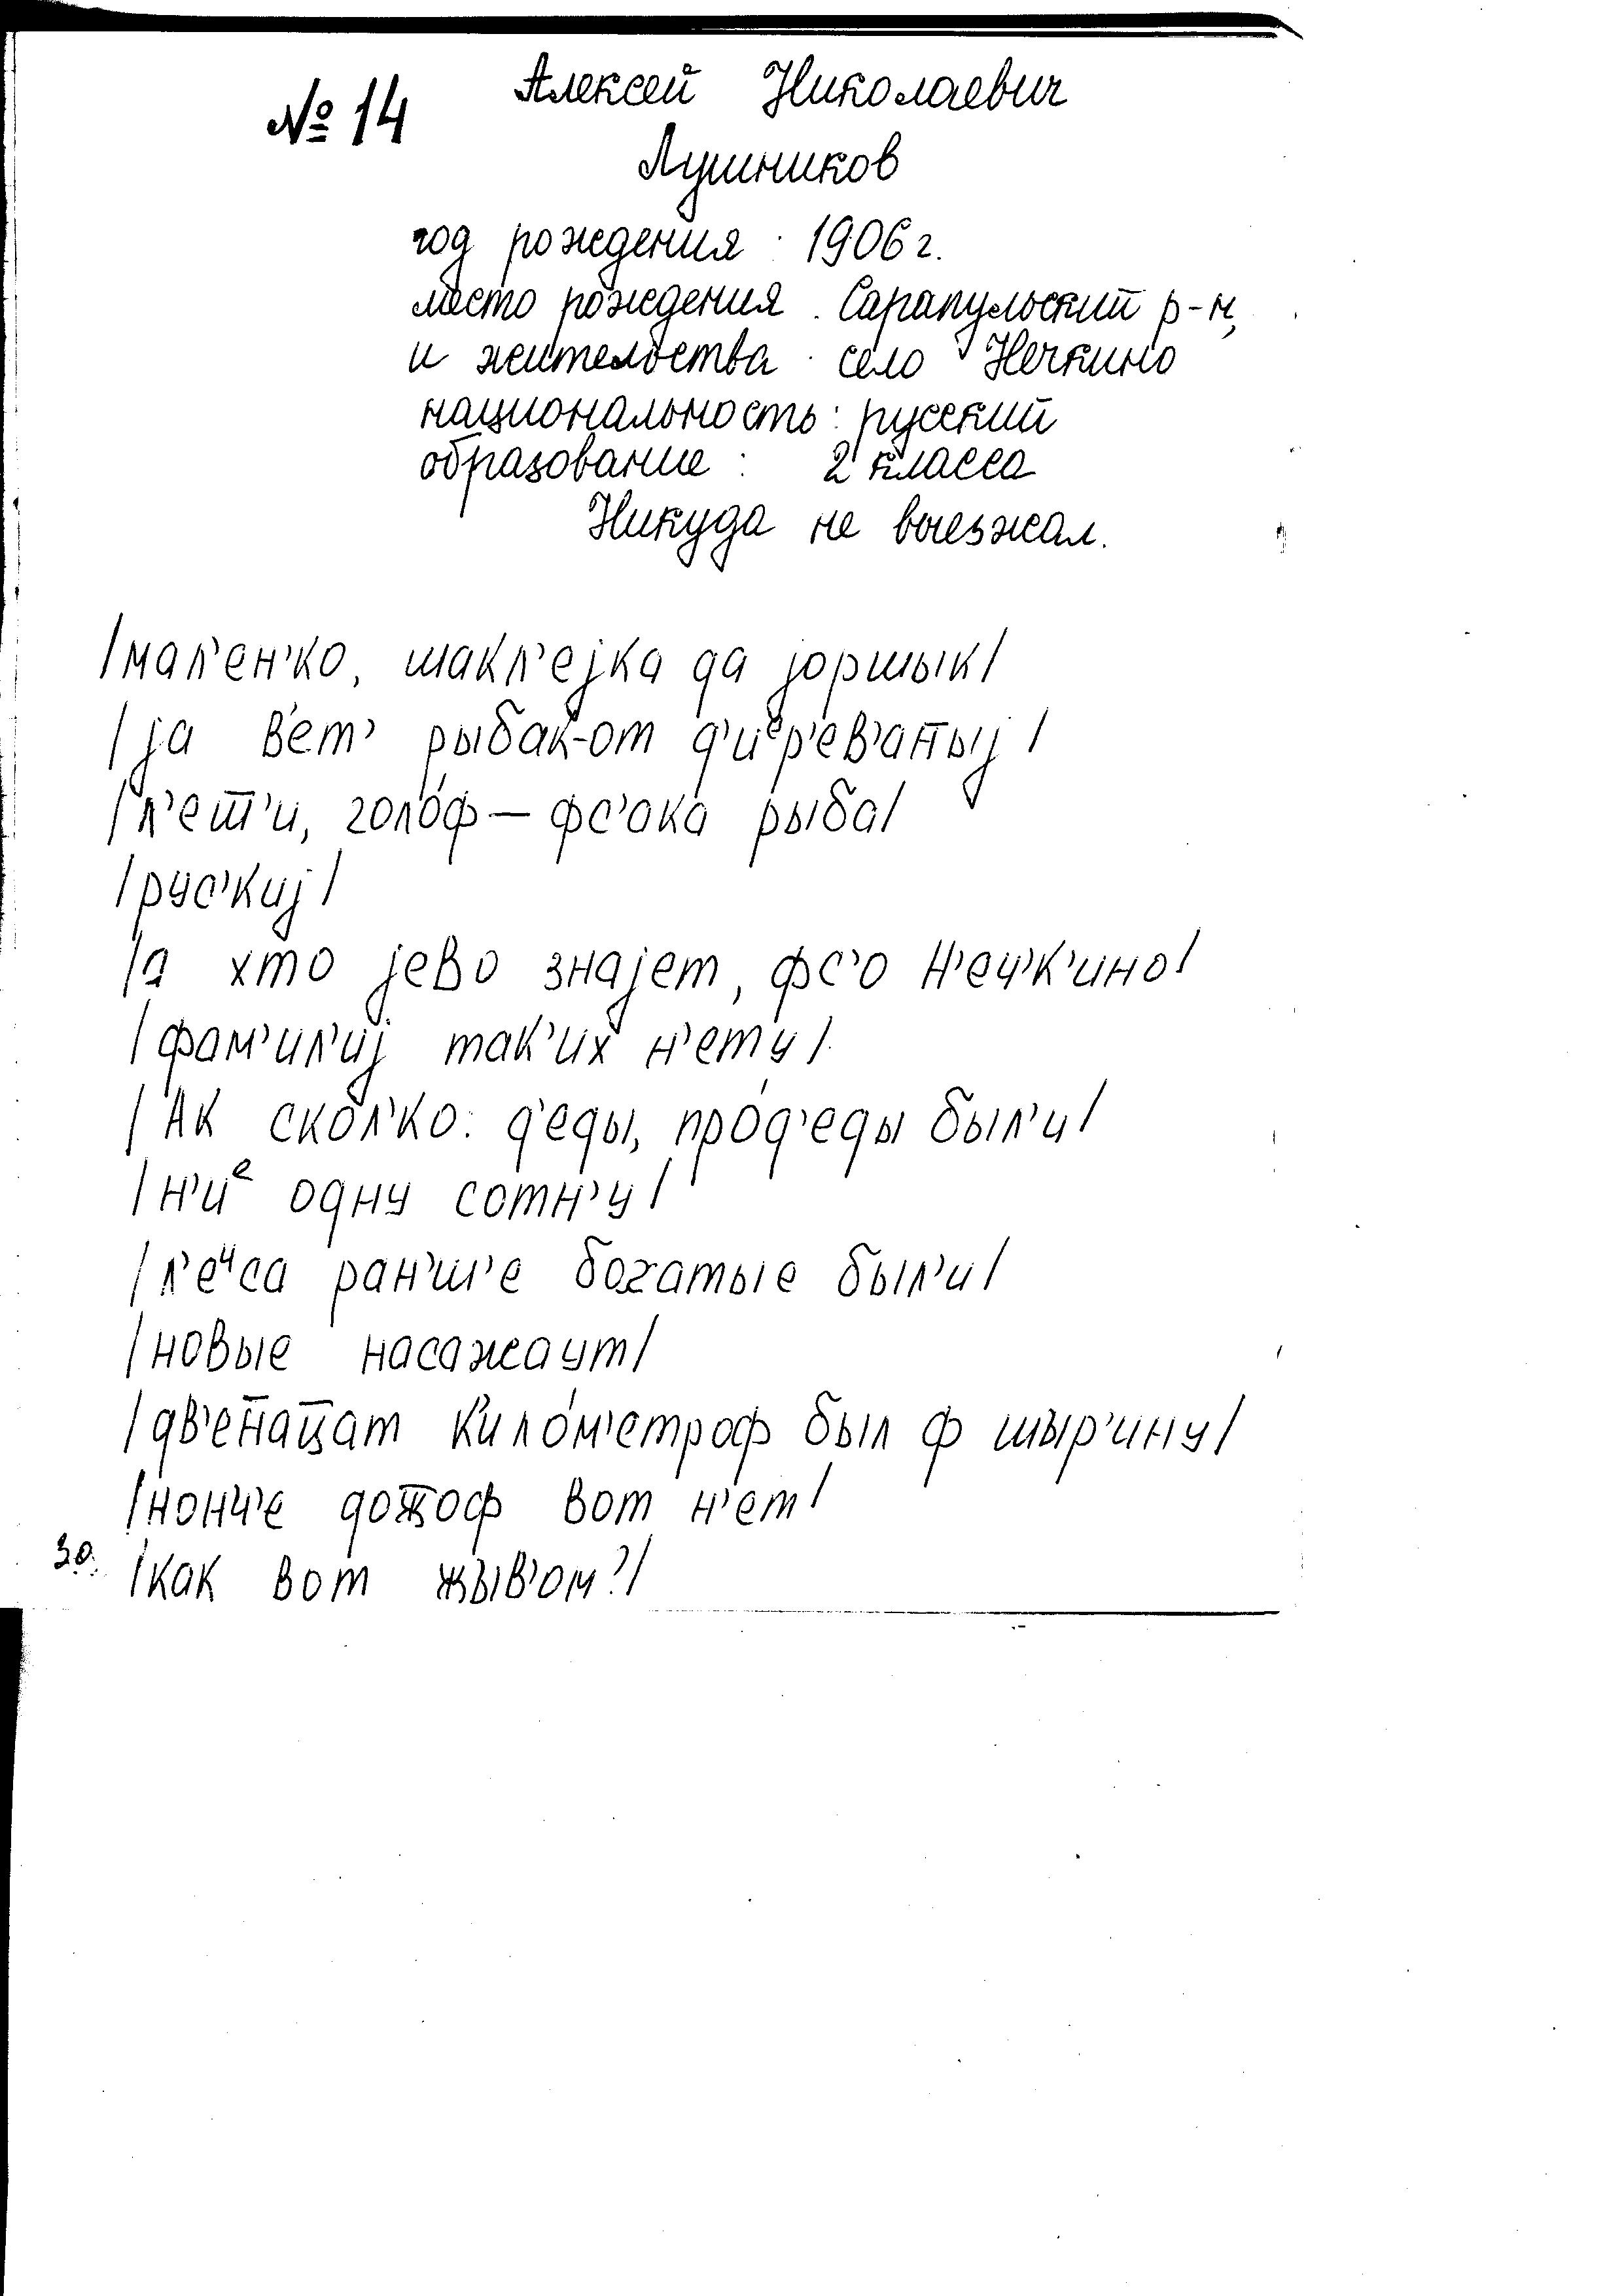 № 14 Алексей Николаевич
Лушников
год рождения : 1906 г.
место рождения : Сарапульский р-н,
и жительства : село Нечкино
национальность : русский
образование : 2 класса
Никуда не выезжал.
/мал'ен'ко, шакл'еjка да jоршык/
/jа в'ет' рыбак-от д'иᵉр'ев'ан̅ыj/
/л'ет̅'и, голо́ф – фс'ака рыба/
/рус'киj/
/а хто jево знаjет, фс'о н'еч'к'ино/
/фам'ил'иj так'их н'ету/
/Ак скол'ко: д'еды, про́д'еды был'и/
/н'иᵉ одну сотн'у/
/л'еᵘса ран'ш'е богатые был'и/
/новые насажаут/
/дв'ен̅ац̅ат к'ило́м'етроф был ф шыр'ину/
/нонч'е дож̅оф вот н'ет/
30. /как вот жыв'ом?/